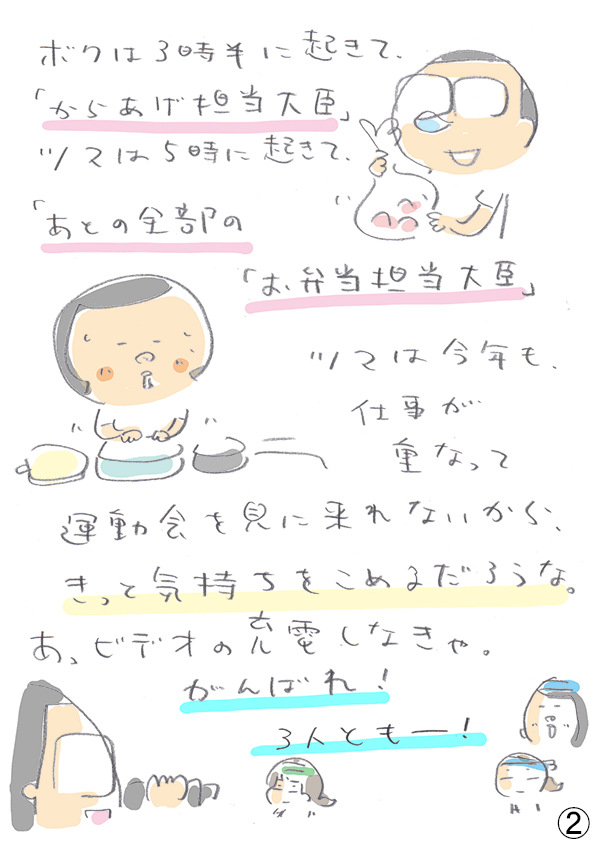 ボクは3時半に起きて、
「からあげ担当大臣」
ツマは5時に起きて、
「あとの全部の
「お弁当担当大臣」
ツマは今年も、
仕事が
重なって
運動会を見に来れないから、
きって気持ちをこめるだろうな。
あ、ビデオの充電しなきゃ。
がんばれ!
3人ともー!
②